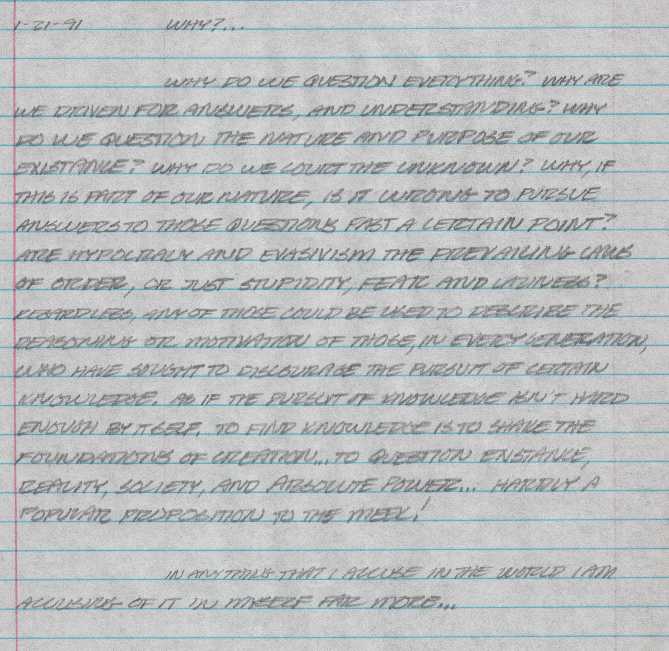 1-21-91 WHY?...
WHY DO WE QUESTION EVERYTHING? WHY ARE
WE DRIVEN FOR ANSWERS, AND UNDERSTANDING? WHY
DO WE QUESTION THE NATURE AND PURPOSE OF OUR
EXISTANCE? WHY DO WE COURT THE UNKNOWN? WHY, IF
THIS IS PART OF OUR NATURE, IS IT WRONG TO PURSUE
ANSWERS TO THOSE QUESTIONS PAST A CERTAIN POINT?
ARE HYPOCRACY AND EVASIVISM THE PREVAILING LAWS
OF ORDER, OR JUST STUPIDITY, FEAR AND LAZINESS?
REGARDLESS, ANY OF THOSE COULD BE USED TO DESCRIBE THE
REASONING OR MOTIVATION OF THOSE, IN EVERY GENERATION,
WHO HAVE SOUGHT TO DISCOURAGE THE PURSUIT OF CERTAIN
KNOWLEDGE. AS IF THE PURSUIT OF KNOWLEDGE ISN'T HARD
ENOUGH BY ITSELF. TO FIND KNOWLEDGE IS TO SHAKE THE
FOUNDATIONS OF CREATION... TO QUESTION EXISTANCE,
REALITY, SOCIETY, AND ABSOLUTE POWER... HARDLY A
POPULAR PROPOSITION TO THE MEEK!
IN ANYTHING THAT I ACCUSE IN THE WORLD I AM
ACCUSING OF IT IN MYSELF FAR MORE...